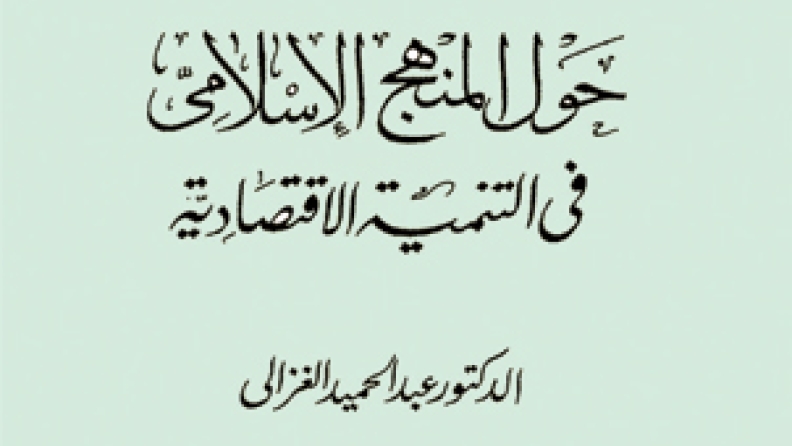 حَوْلَ المنهج الإسْلَامِيّ
في التنمية الاقتصَادِيَّة
الدكتور عبد الحميد الغزالى